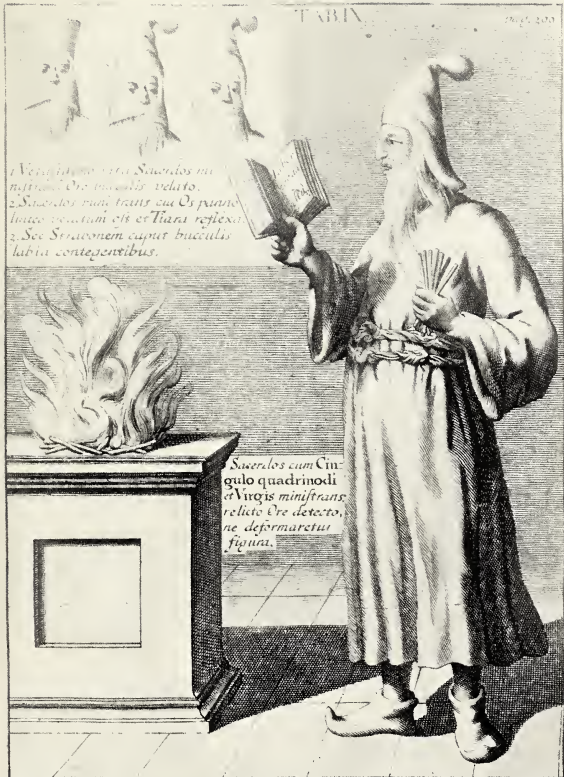 TAB IX
pag. 200
Sacerdos
Ore velato.
2. Sacerdos nunc trans cui Os panno
lineo est et Tiara reflexa
Sec Straconem caput bucculis
labia contegentibus.
Sacerdos cum Cin-
gulo quadrinodi
et Virgis ministrans,
relicto Ore detecto,
ne deformaretur
figura.